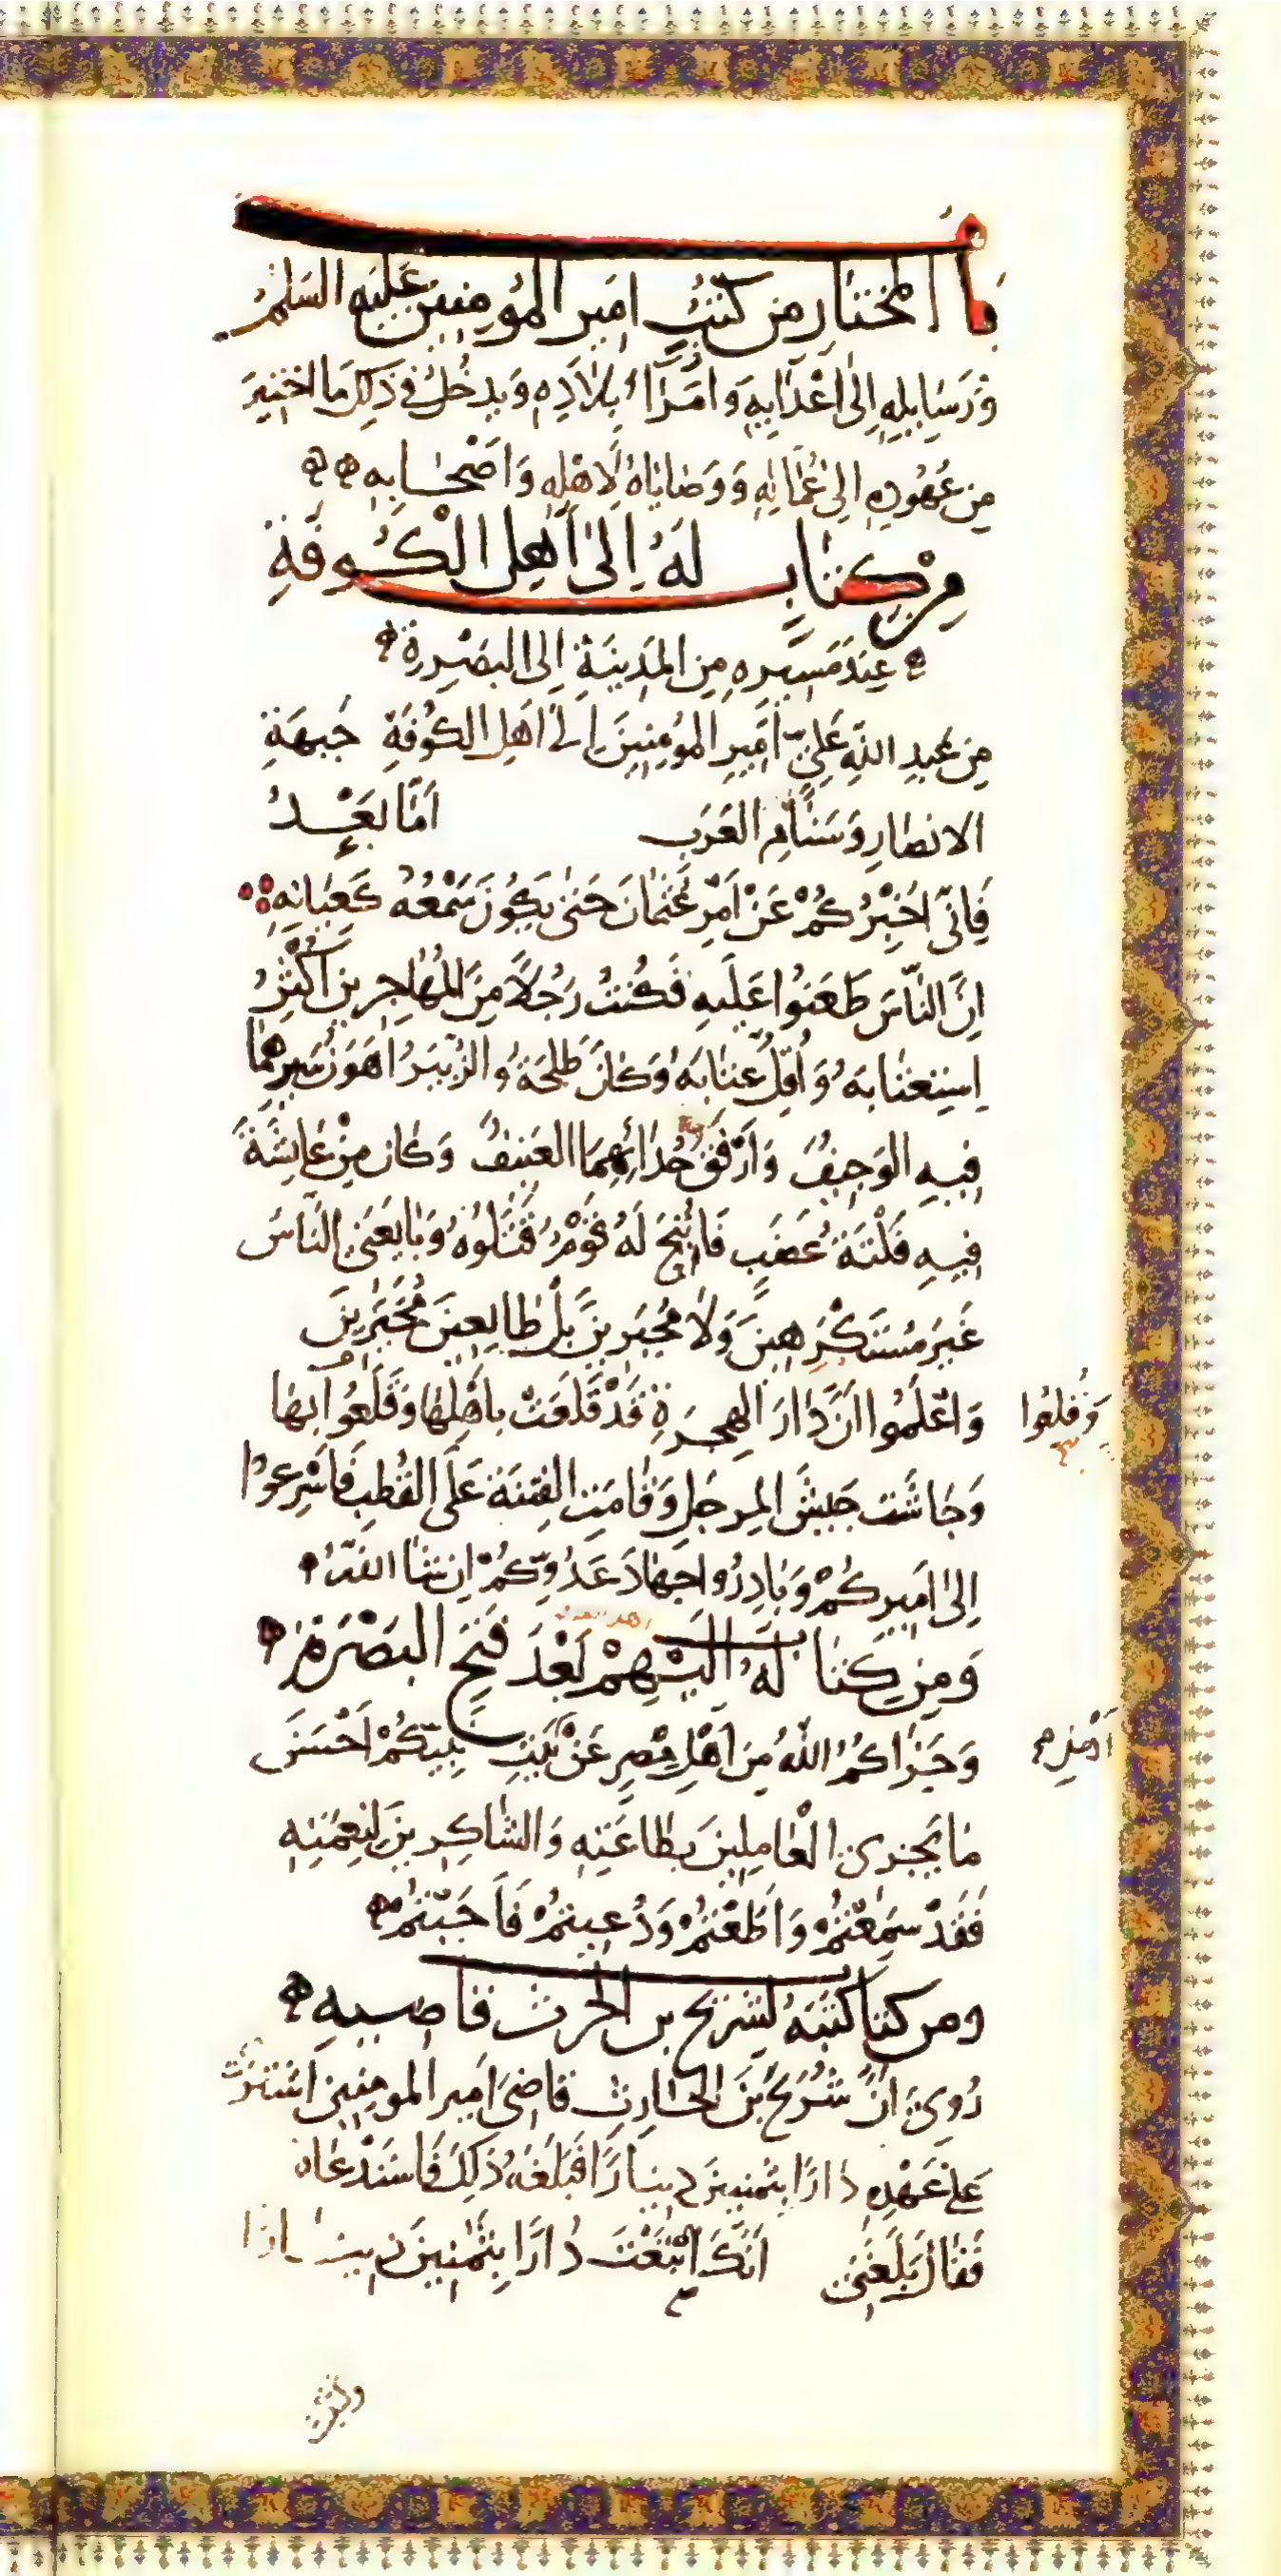 باب المختار من كتب امير المؤمنين عليه السلم
وَرَسَايله إلى أعْدَايِهِ وَامَرَاءِ بِلَادِهِ وَيدخُلُ في ذَلِكَ مَا اختِيرَ
مِن عُهُودِهِ إلى عُمَّالِهِ وَوَصَايَاهُ لِأهْلِهِ وَاصْحَابِهِ
مِنْ كِتَابٍ لَهُ إلى أهلِ الْكُوفَةِ
عِندَ مَسِيرِهِ مِنَ المَدِينَةِ إلى البَصْرةِ
مِن عَبدِ اللهِ عَلِيٍّ أمِيرِ المؤمِنِينَ إلى أهلِ الكُوفَةِ جَبهَةِ
الانصَارِ وَسَنَامِ العَرَبِ أمَّا بَعْدُ
فَإنّي اخْبِرُكُمْ عَنْ أمْرِ عُثمَانَ حَتى يَكُونَ سَمْعُهُ كَعِيَانِهِ
إنَّ النَّاسَ طَعَنُوا عَلَيهِ فَكُنتُ رَجُلاً مِنَ المُهَاجِرِينَ اكْثِرُ
إستِعتَابَهُ وَأُقِلُّ عِتَابَهُ وَكَانَ طَلحَةُ وَالزُّبَيرُ أهوَنُ سَيرِهِمَا
فِيهِ الوَجِيفُ وَأرْفَقُ حُدَائِهِمَا العَنِيفُ وَكَان مِنْ عَايشَةَ
فِيهِ فَلْتَةُ غَضَبٍ فَاُتِيحَ لَهُ قَوْمٌ قَتَلُوهُ وَبَايَعَنِي النَّاسُ
غَيرَ مُستَكْرَهِينَ وَلَا مُجبَرينَ بَلْ طَايعِينَ مُخَيَّرِينَ
وَاعْلَمُوا انَّ دَارَ الهِجرَةِ قَدْ قَلَعَتْ بِأهْلِهَا وَقَلَعُوا بهَا
وَقُلِعُوا
وَجَاشَت جَيشَ المِرجَلِ وَقَامَتِ الفِتنَةُ عَلَى القُطبِ فَأسْرِعوُا
إلى أمِيرِكُمْ وَبَادِرُوا جهَادَ عَدُوِّكُمْ إن شَا اللهُ
وَمِن كِتَاب لَهُ إلَيْهِمْ بَعْدَ فَتحِ البَصْرَةِ
وَجَزَاكُمُ اللهُ مِن أهْلِ مِصرٍ عَنْ أهل بَيتِ نَبِيّكُمْ أحْسَنَ
مَا يَجزِي العَامِلِينَ بِطَاعَتِهِ وَالشَّاكِرِينَ لِنِعمَتِهِ
فَقَدْ سَمِعْتُمْ وَأطَعْتُمْ وَدُعِيتُمْ فَأجَبْتُمْ
ومن كتاب كتبَهُ لشريح بن الحرث قاضيهِ
رُوِيَ أنَّ شُرَيحَ بنَ الحَارِثِ قاضي أمير المومنين اشترَى
عَلى عَهْدِهِ دَارًا بثمنِينَ دِينَارًا فَبَلَغَهُ ذلِكَ فَاستَدْعَاهُ
فَقَالَ بَلَغَنِي أنَّكَ ابْتَعْتَ دَارًا بِثَمنِينَ دِينَارًا